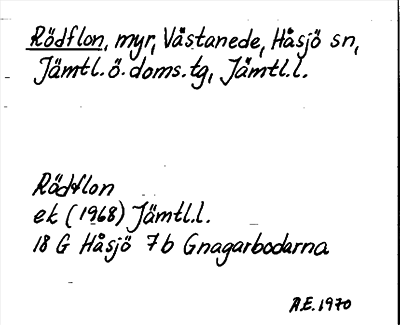 Rödflon, myr, Västanede, Håsjö sn,
Jämtl. ö. doms. tg, Jämtl.l.
Rödflon
ek (1968) Jämtl.l.
18 G Håsjö 7b Gnagarbodarna
A.E. 1970